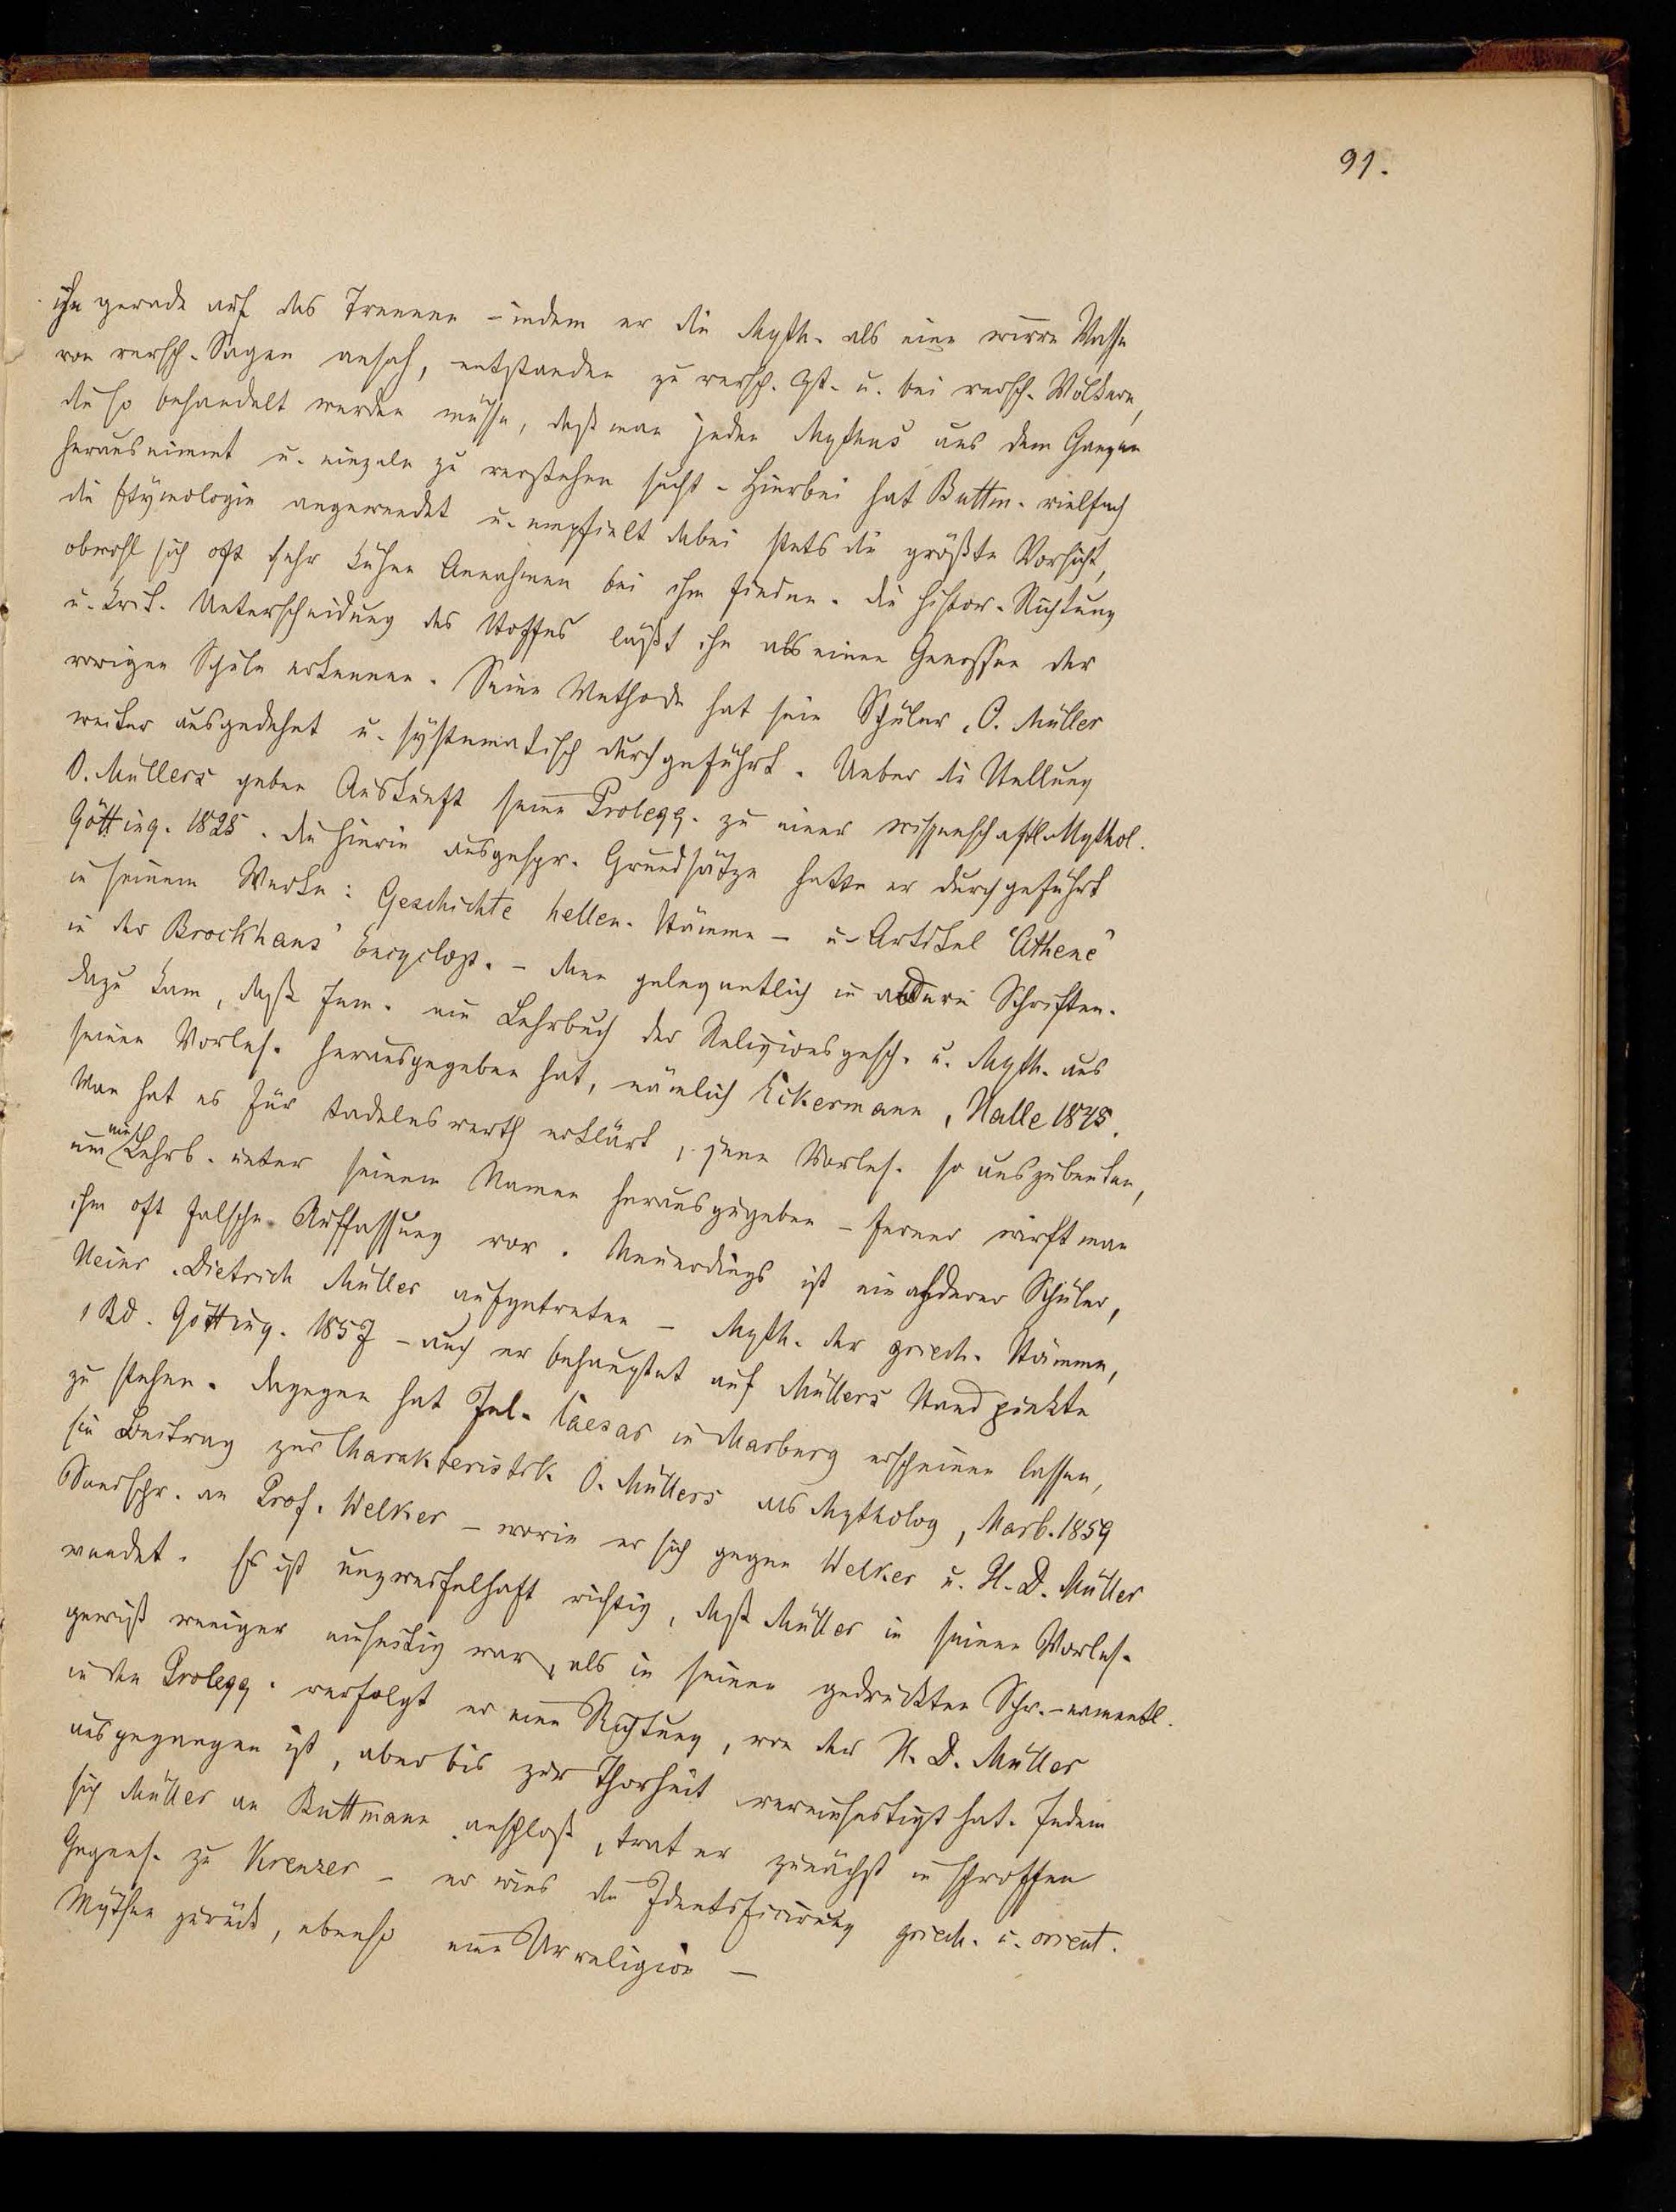 91.
ihn gerade auf das Trennen – indem er die Myth. als eine wirre Masse
von versch. Sagen ansah, entstanden zu versch. Zt. u. bei versch. Völkern,
die so behandelt werden müsse, daß man jeden Mythus aus dem Ganzen
herausnimmt u. einzeln zu verstehen sucht – Hierbei hat Buttm. vielfach
die Etymologie angewendet u. empfielt dabei stets die größte Vorsicht,
obwohl sich oft sehr kühne Annahmen bei ihm finden. Die histor. Richtung
u. krit. Unterscheidung des Stoffes läßt ihn als einen Genossen der
vorigen Schule erkennen. Seine Methode hat sein Schüler, O. Müller
weiter ausgedehnt u. systematisch durchgeführt. Ueber die Stellung
O. Müllers geben Auskunft seine Prolegg. zu einer wissenschaftl. Mythol.
Götting. 1825. Die hierin ausgespr. Grundsätze hatte er durchgeführt
in seinem Werke: Geschichte hellen. Stämme – u. Artikel "Athene"
in der Brockhaus' Encyclop. – dann gelegentlich in andern Schriften.
dazu kam, daß Jem. ein Lehrbuch der Religionsgesch. u. Myth. aus
seinen Vorles. herausgegeben hat, nämlich Eckermann, Halle 1845.
Man hat es für tadelnswerth erklärt, jene Vorles. so auszubeuten,
um ein Lehrb. unter seinem Namen herauszugeben – ferner wirft man
ihm oft falsche Auffassung vor. Neuerdings ist ein anderer Schüler,
Heinr. Dietrich Müller aufgetreten – Myth. der griech. Stämme,
1 Bd. Götting. 1857 – auch er behauptet auf Müllers Standpunkte
zu stehen. Dagegen hat Jul. Caesar in Marburg erscheinen lassen,
ein Beitrag zur Charakteristik O. Müllers als Mytholog, Marb. 1859
Sendschr. an Prof. Welker – worin er sich gegen Welker u. H. D. Müller
wendet. Es ist unzweifelhaft richtig, daß Müller in seinen Vorles.
gewiß weniger einseitig war, als in seinen gedruckten Schr. – namentl.
in den Prolegg. verfolgt er eine Richtung, von der H. D. Müller
ausgegangen ist, aber bis zur Thorheit vereinseitigt hat. Indem
sich Müller an Buttmann anschloß, trat er zunächst in schroffen
Gegens. zu Kreuzer – er wies die Identificirung griech. u. orient.
Mythen zurück, ebenso eine Urreligion –